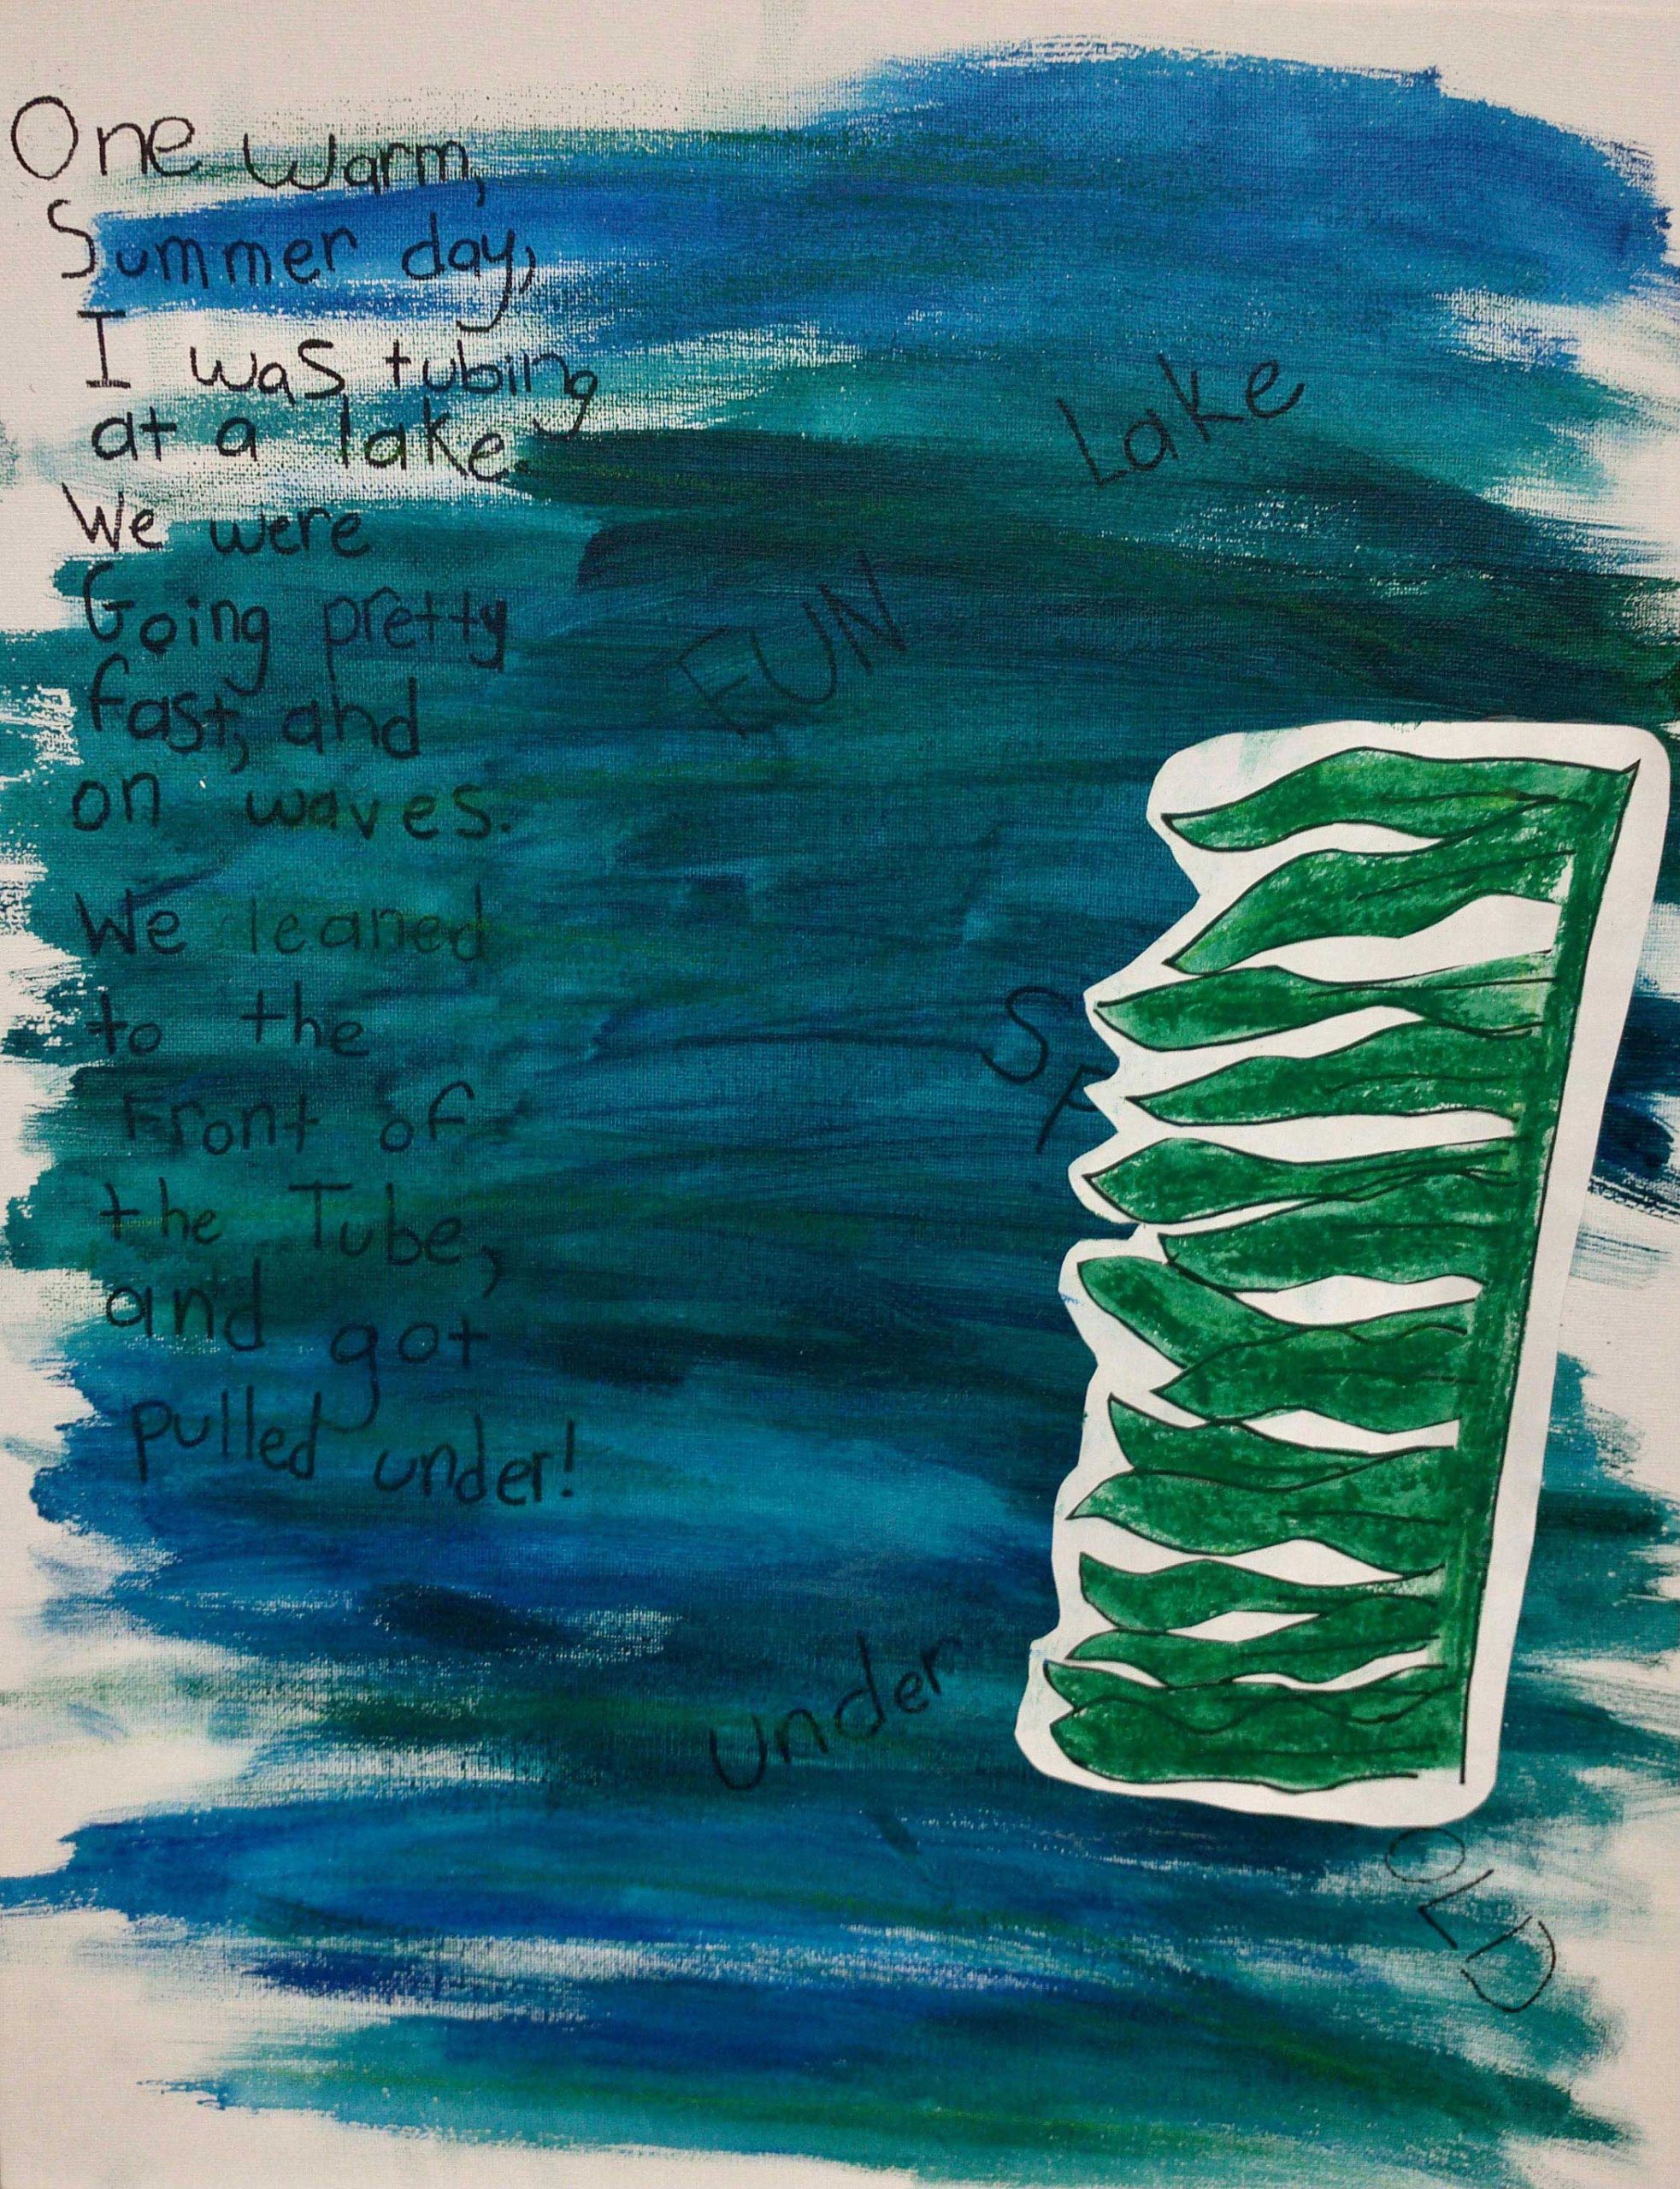 One warm,
Summer day,
I was tubing
at a lake.
We were
Going pretty
fast, and
on waves.
We leaned
to the
Front of
the Tube,
and got
pulled under!
Lake
FUN
under